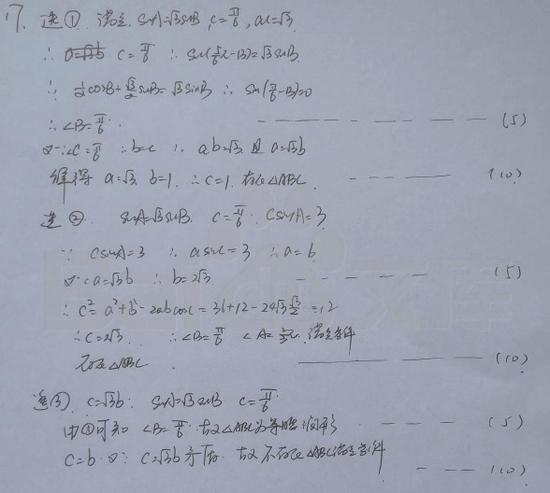 17. 选① 满足 sinA=√3sinB, C=π/6, ac=√3
∴ C=π/6 ∴ sin(5/6π-B)=√3sinB
∴ 1/2cosB+√3/2sinB=√3sinB ∴ sin(π/6-B)=0
∴ ∠B=π/6 (5)
又∵∠C=π/6 ∴b=c ∴ ab=√3 且 a=√3b
解得 a=√3 b=1 ∴c=1 存在△ABC (10)
选② sinA=√3sinB C=π/6 csinA=3
∵ csinA=3 ∴ asinC=3 ∴a=6
又∵a=√3b ∴ b=2√3 (5)
∴ c²=a²+b²-2abcosC=36+12-24√3·√3/2=12
∴C=2√3 ∴∠B=π/6 ∠A=2/3π 满足条件
存在△ABC (10)
选③ c=√3b sinA=√3sinB C=π/6
由①可知 ∠B=π/6 故△ABC为等腰三角形 (5)
C=b 又∵ C=√3b矛盾 故不存在△ABC满足条件
(10)